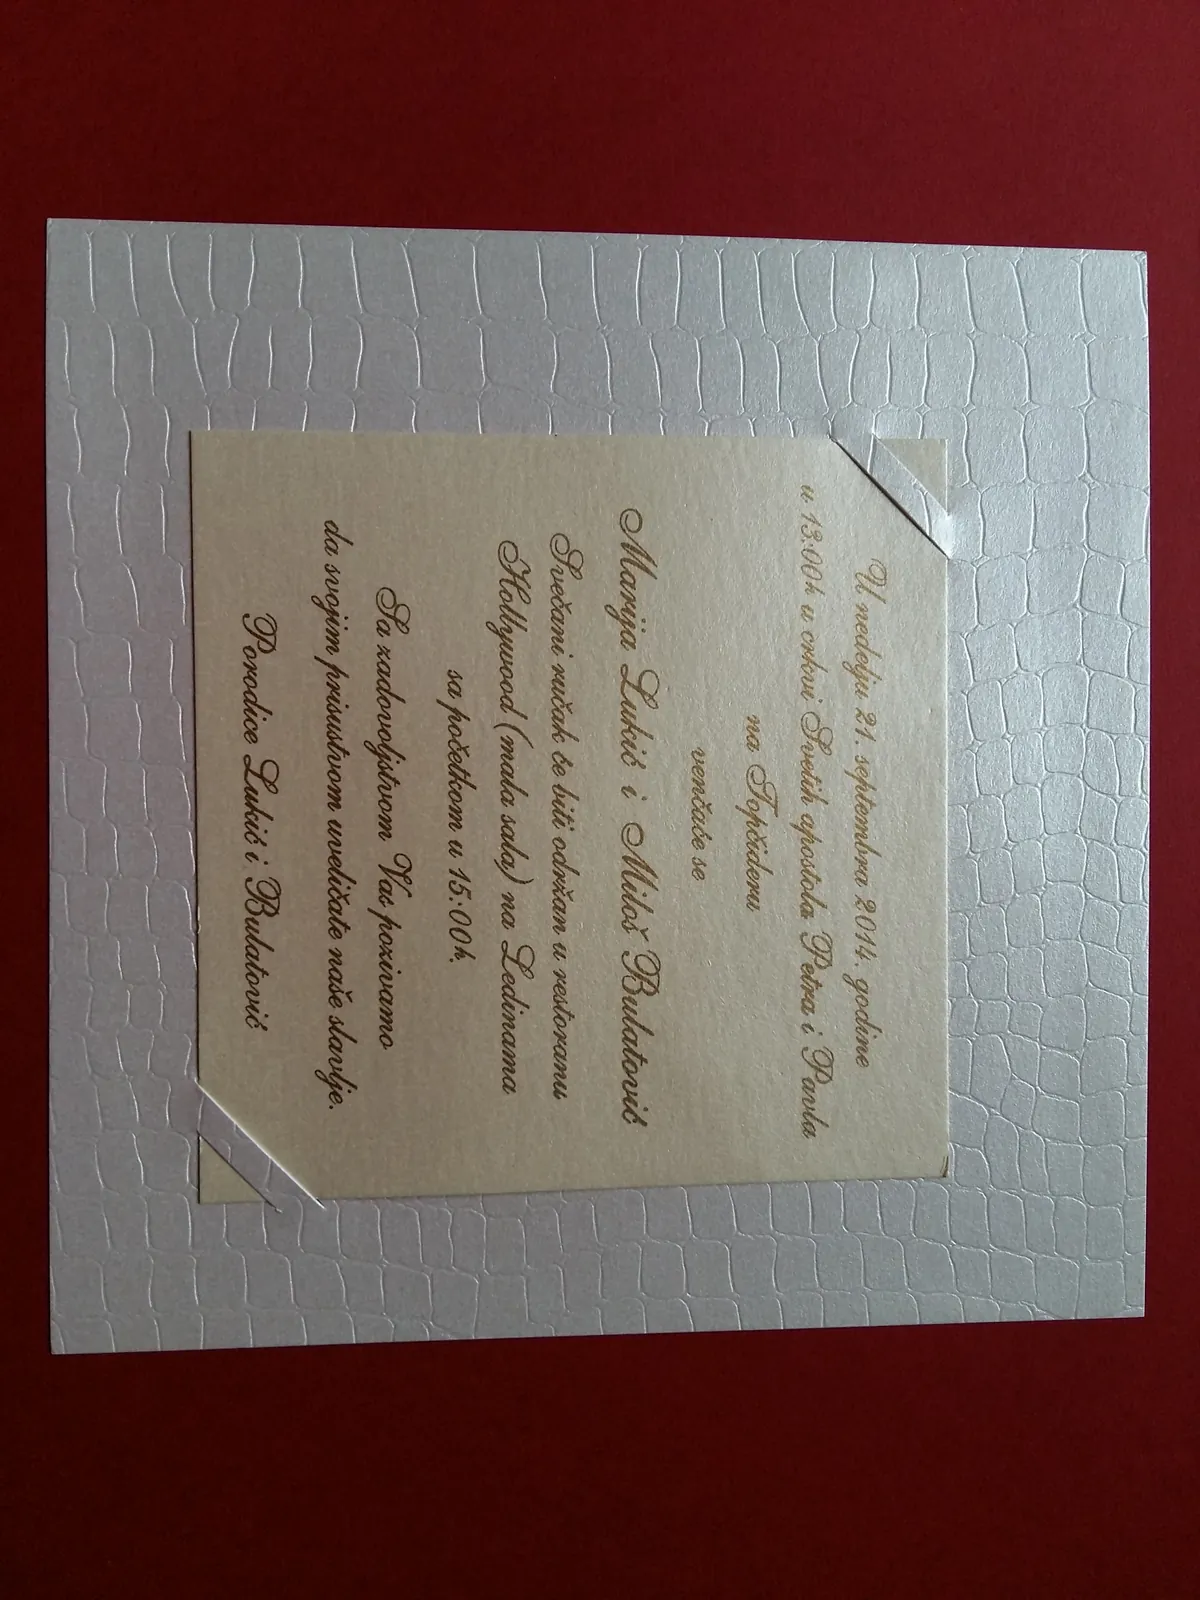 U nedelju 21. septembra 2014. godine
u 13:00h u crkvi Svetih apostola Petra i Pavla
na Topčideru
venčaće se
Marija Lukić i Miloš Bulatović
Svečani ručak će biti održan u restoranu
Hollywood (mala sala) na Ledinama
sa početkom u 15:00h.
Sa zadovoljstvom Vas pozivamo
da svojim prisustvom uveličate naše slavlje.
Porodice Lukić i Bulatović